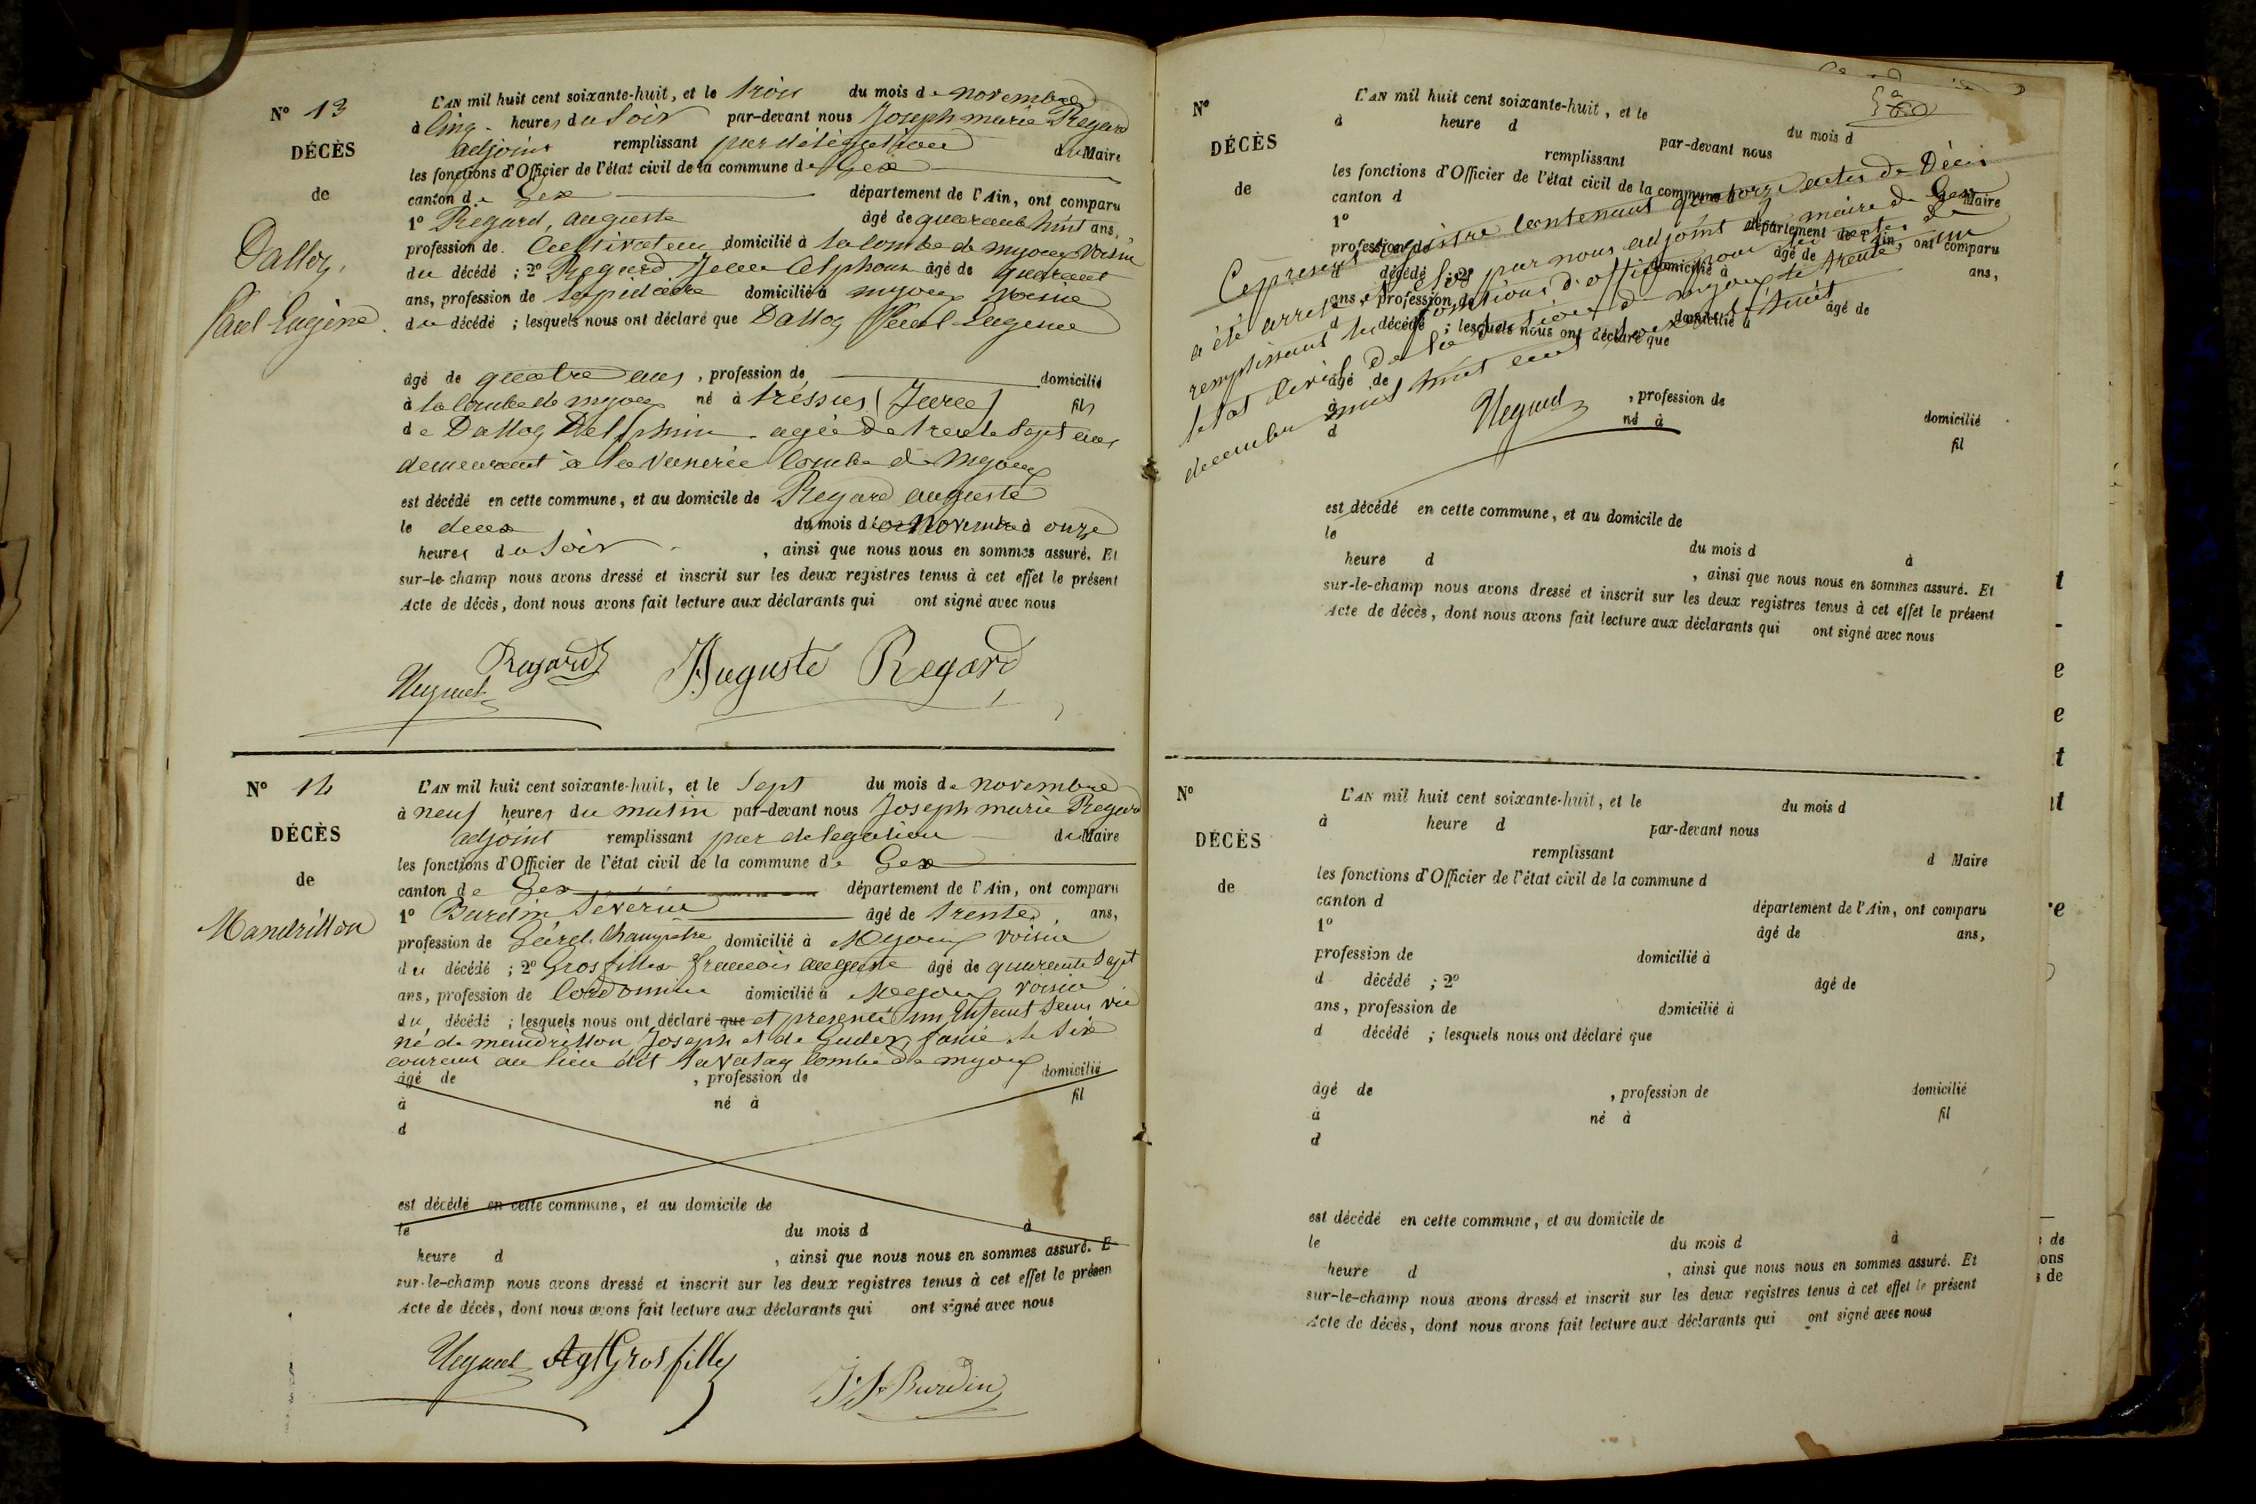 N° 13
DÉCÈS
de
Dalloz
Paul Eugène
L'AN mil huit cent soixante-huit, et le trois du mois de novembre
à cinq heures du soir par-devant nous Joseph marie Regard
adjoint remplissant par délégation du Maire
les fonctions d'Officier de l'état civil de la commune de Gex
canton de Gex département de l'Ain, ont comparu
1° Regard, auguste âgé de quarante huit ans,
profession de Cultivateur domicilié à la combe de myoux voisin
du décédé ; 2° Regard, Jean Alphonse âgé de quarante
ans, profession de lapidaire domicilié à myoux voisin
du décédé ; lesquels nous ont déclaré que Dalloz Paul Eugène
âgé de quatre ans, profession de domicilié
à la combe de myoux né à (Jura) fils
de Dalloz Delphin agée de trente sept ans
demeurant à la combe de myoux
est décédé en cette commune, et au domicile de Regard auguste
le deux du mois de Novembre à onze
heures du soir, ainsi que nous nous en sommes assuré. Et
sur-le-champ nous avons dressé et inscrit sur les deux registres tenus à cet effet le présent
Acte de décès, dont nous avons fait lecture aux déclarants qui ont signé avec nous
Regard Auguste Regard
N° 14
DÉCÈS
de
Mandrillon
L'AN mil huit cent soixante-huit, et le Sept du mois de novembre
à neuf heures du matin par-devant nous Joseph marie Regard
adjoint remplissant par delegation du Maire
les fonctions d'Officier de l'état civil de la commune de Gex
canton de Gex département de l'Ain, ont comparu
1° Burdin Séverin âgé de trente, ans,
profession de Gard. Champetre domicilié à Myoux voisin
du décédé ; 2° Grosfilley françois auguste âgé de quarante Sept
ans, profession de Cordonnier domicilié à Myoux voisin
du décédé ; lesquels nous ont déclaré que et presenté un Enfant sans vie
né de mandrillon Joseph et de le six
courant au lieu dit combe de myoux
âgé de , profession de domicilié
à né à fil
d
est décédé en cette commune, et au domicile de
le du mois d à
heure d , ainsi que nous nous en sommes assuré. E
sur-le-champ nous avons dressé et inscrit sur les deux registres tenus à cet effet le présen
Acte de décès, dont nous avons fait lecture aux déclarants qui ont signé avec nous
Agt Grosfilley
Burdin
N°
DÉCÈS
de
L'AN mil huit cent soixante-huit, et le du mois d
à heure d par-devant nous
remplissant Maire
les fonctions d'Officier de l'état civil de la commune
canton d département de l'Ain, ont comparu
1° âgé de ans,
profession de domicilié à
d décédé ; 2° âgé de
ans, profession de domicilié à
d décédé ; lesquels nous ont déclaré que
Ce présent registre contenant quatorze actes de Décès
a été arrêté et clos par nous adjoint maire de Gex
remplissant les fonctions d'officier pour les actes de
l'état civil de la section de myoux le trente un
decembre mil huit cent soixante huit
âgé de , profession de domicilié
à né à fil
d
est décédé en cette commune, et au domicile de
le du mois d à
heure d , ainsi que nous nous en sommes assuré. Et
sur-le-champ nous avons dressé et inscrit sur les deux registres tenus à cet effet le présent
Acte de décès, dont nous avons fait lecture aux déclarants qui ont signé avec nous
N°
DÉCÈS
de
L'AN mil huit cent soixante-huit, et le du mois d
à heure d par-devant nous
remplissant d Maire
les fonctions d'Officier de l'état civil de la commune d
canton d département de l'Ain, ont comparu
1° âgé de ans,
profession de domicilié à
d décédé ; 2° âgé de
ans, profession de domicilié à
d décédé ; lesquels nous ont déclaré que
âgé de , profession de domicilié
à né à fil
d
est décédé en cette commune, et au domicile de
le du mois d à
heure d , ainsi que nous nous en sommes assuré. Et
sur-le-champ nous avons dressé et inscrit sur les deux registres tenus à cet effet le présent
Acte de décès, dont nous avons fait lecture aux déclarants qui ont signé avec nous